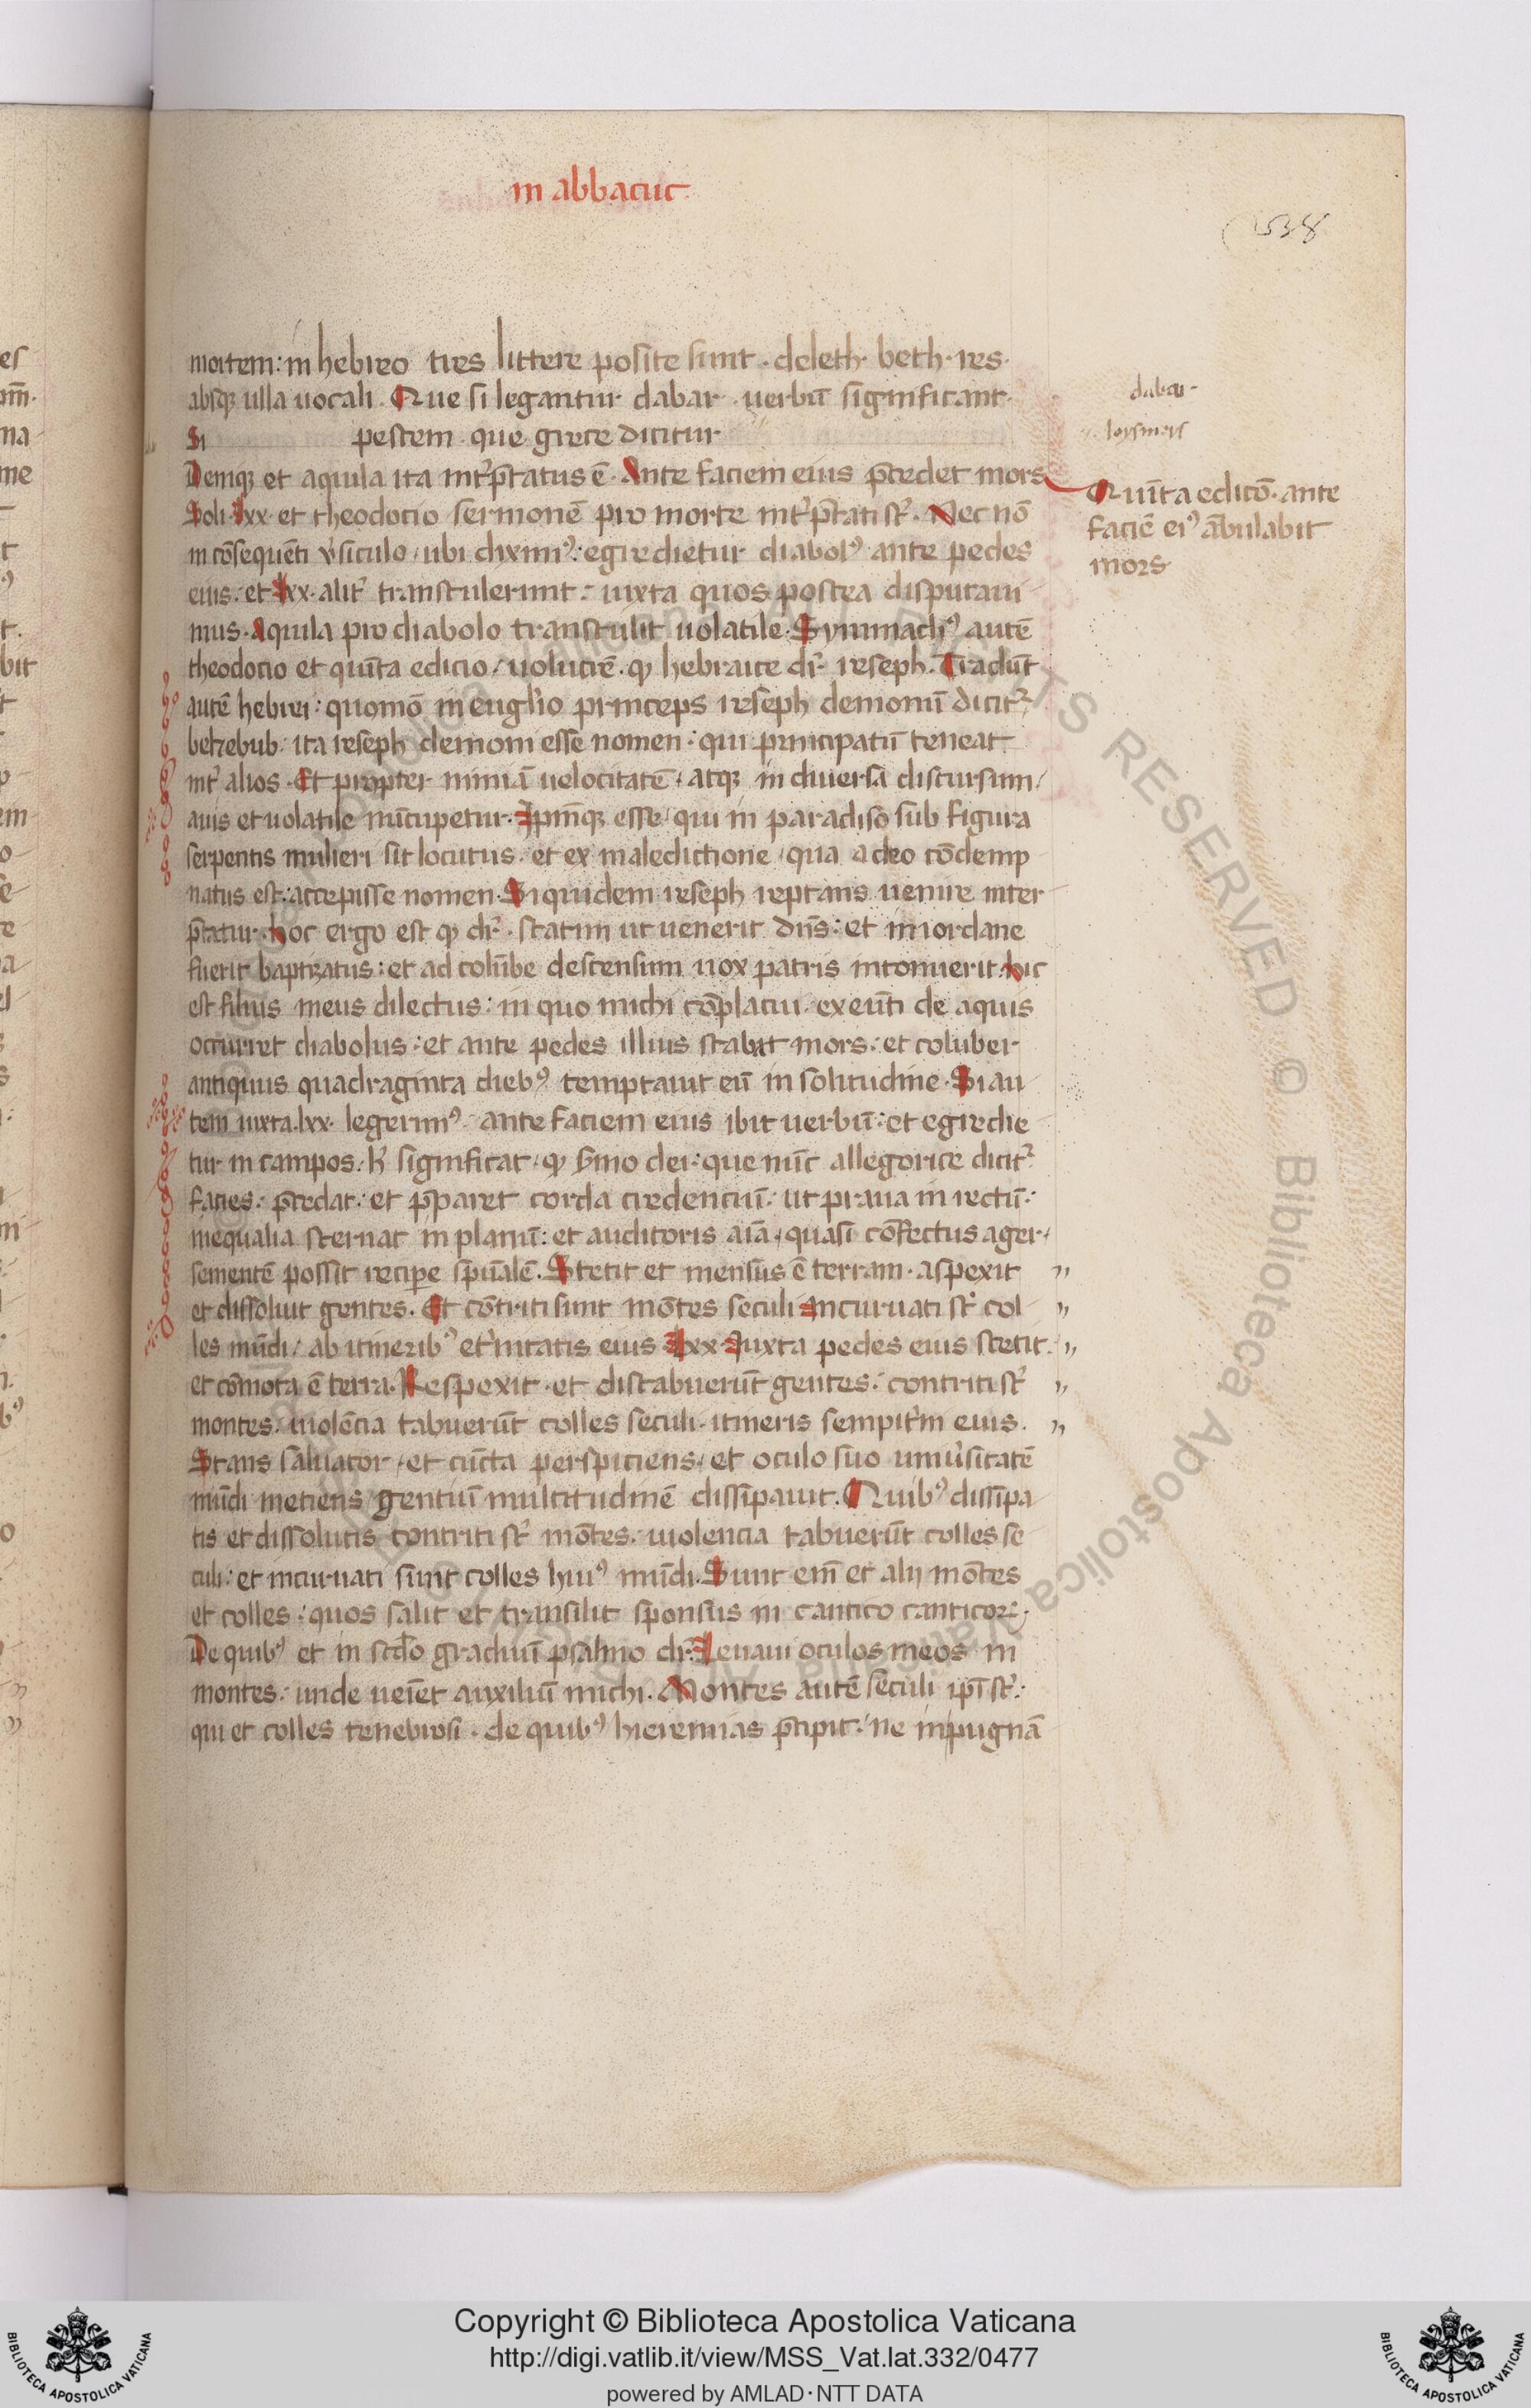 in abbacuc
538
mortem: in hebreo tres littere posite sunt. deleth. beth. res.
absq; ulla uocali. Que si legantur dabar. uerbū significant.
dabar.
Si pestem que grece dicitur
Deniq; et aquila ita int̾p̄tatus ē. Ante faciem eius p̄cedet mors
Quīta editō. ante
faciē ei⁹ ābulabit
mors
Soli. lxx. et theodotio sermonē pro morte int̾p̄tati st̾. Nec nō
in cōsequēti v̾siculo, ubi diximꝰ: egredietur diabolꝰ ante pedes
eius. et lxx. alit̾ transtulerunt: iuxta quos postea disputaui
mus. Aquila pro diabolo transtulit uolatile. Symmachꝰ autē
theodotio et quīta edicio, uolucrē. ꝙ hebraice dr̄. reseph. Tradūt
autē hebrei: quomō in euglio princeps reseph demoniū dicit̾
belzebub. ita reseph demoni esse nomen: qui principatū teneat
int̾ alios. Et propter nimiā uelocitatē, atq; in diuersa discursum,
auis et uolatile nūcupetur. Ipm̄q; esse, qui in paradiso sub figura
serpentis mulieri sit locutus. et ex maledictione, qua a deo cōdemp
natus est: accepisse nomen. Siquidem reseph reptans uenire inter
p̄tatur. hoc ergo est ꝙ dr̄. statim ut uenerit dn̄s: et in iordane
fuerit baptizatus: et ad colūbe descensum uox patris intonuerit. hic
est filius meus dilectus: in quo michi cōplacui. exeūti de aquis
occurret diabolus: et ante pedes illius stabat mors: et coluber
antiquus quadraginta diebꝰ temptauit eū in solitudine. Si au
tem iuxta. lxx. legerimꝰ. ante faciem eius ibit uerbū: et egredie
tur in campos. h̾ significat, ꝙ s̄mo dei: que nūc allegorice dicit̾
facies: p̄cedat: et p̄paret corda credenciū: ut praua in rectū:
inequalia sternat in planū: et auditoris aiā, quasi cōfectus ager,
sementē possit recipe sp̄ualē. Stetit et mensus ē terram. aspexit
et dissoluit gentes. Et cōtriti sunt mōtes seculi Incuruati st̾ col
les mūdi, ab itineribꝰ et̾nitatis eius lxx. Iuxta pedes eius stetit.
et cōmota ē terra. Respexit. et distabuerūt gentes: contriti st̾
montes. uiolēcia tabuerūt colles seculi. itineris sempit̾ni eius.
Stans saluator, et cūcta perspiciens, et oculo suo uniu̾sitatē
mūdi metiens gentiū multitudinē dissipauit. Quibꝰ dissipa
tis et dissolutis contriti st̾ mōtes. uiolencia tabuerūt colles se
culi: et incuruati sunt colles huiꝰ mūdi. Sunt em̄ et alij mōtes
et colles: quos salit et transilit sponsus in cantico canticoꝝ.
De quibꝰ et in scdo graduū psalmo dr̄. Leuaui oculos meos in
montes: unde ueīet auxiliū michi. Montes autē seculi ip̄i st̾:
qui et colles tenebrosi. de quibꝰ hieremias p̄cipit: ne inpugnā
Copyright © Biblioteca Apostolica Vaticana
http://digi.vatlib.it/view/MSS_Vat.lat.332/0477
powered by AMLAD・NTT DATA
BIBLIOTECA APOSTOLICA VATICANA
BIBLIOTECA APOSTOLICA VATICANA